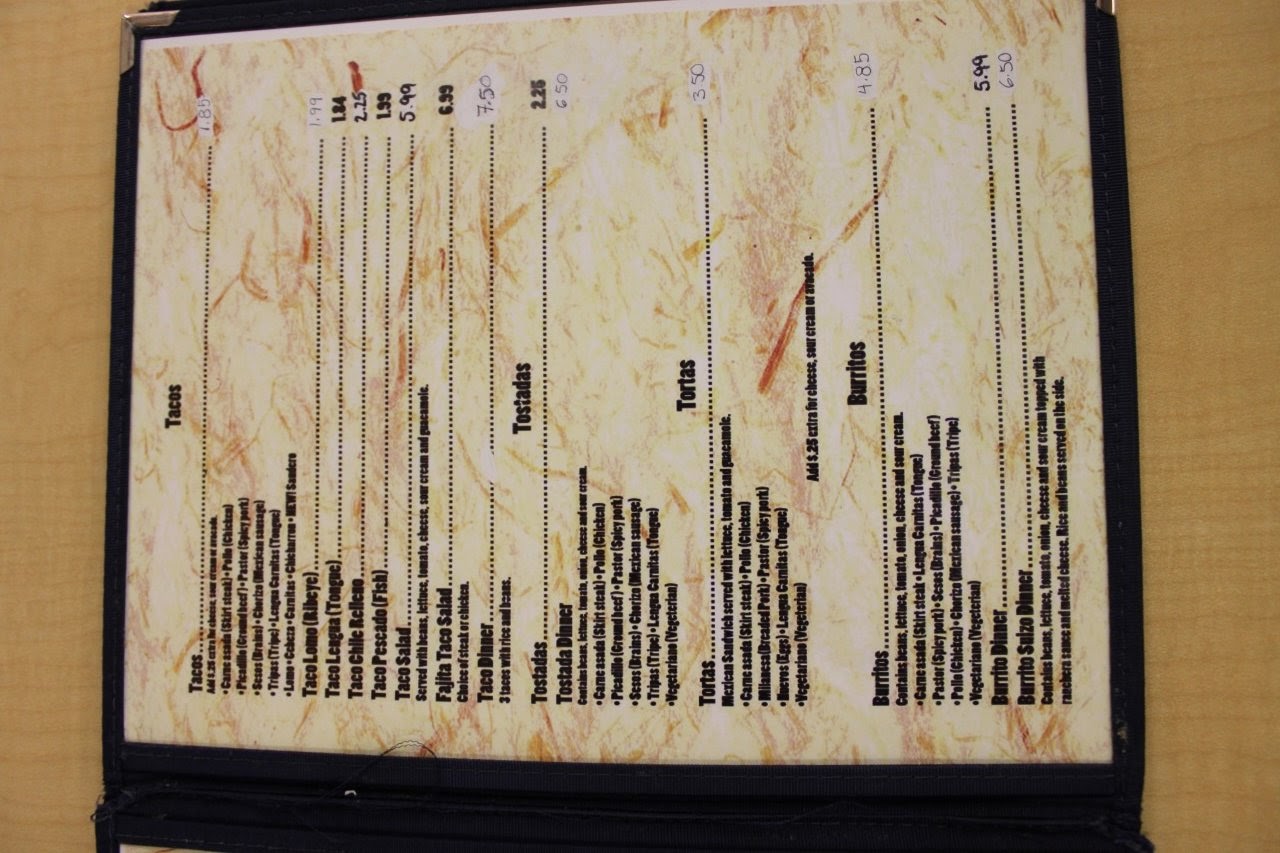 Tacos
Tacos 1.85
Add $.25 extra for cheese, sour cream or avocado.
• Carne asada (Skirt steak) • Pollo (Chicken)
• Picadillo (Ground beef) • Pastor (Spicy pork)
• Sesos (Brains) • Chorizo (Mexican sausage)
• Tripas (Tripe) • Lengua Carnitas (Tongue)
• Lomo • Cabeza • Carnitas • Chicharron • NEW! Suadero
Taco Lomo (Ribeye) 1.99
Taco Lengua (Tongue) 1.84
Taco Chile Relleno 2.25
Taco Pescado (Fish) 1.99
Taco Salad 5.99
Served with beans, lettuce, tomato, cheese, sour cream and guacamole.
Fajita Taco Salad 6.99
Choice of steak or chicken.
Taco Dinner 7.50
3 tacos with rice and beans.
Tostadas
Tostadas 2.25
Tostada Dinner 6.50
Contains beans, lettuce, tomato, onion, cheese and sour cream.
• Carne asada (Skirt steak) • Pollo (Chicken)
• Picadillo (Ground beef) • Pastor (Spicy pork)
• Sesos (Brains) • Chorizo (Mexican sausage)
• Tripas (Tripe) • Lengua Carnitas (Tongue)
• Vegetariano (Vegeterian)
Tortas
Tortas 3.50
Mexican Sandwich served with lettuce, tomato and guacamole.
• Carne asada (Skirt steak) • Pollo (Chicken)
• Milanesa (Breaded Pork) • Pastor (Spicy pork)
• Huevos (Eggs) • Lengua Carnitas (Tongue)
• Vegetariano (Vegeterian)
Add $.25 extra for cheese, sour cream or avocado.
Burritos
Burritos 4.85
Contains beans, lettuce, tomato, onion, cheese and sour cream.
• Carne asada (Skirt steak) • Lengua Carnitas (Tongue)
• Pastor (Spicy pork) • Sesos (Brains) • Picadillo (Ground beef)
• Pollo (Chicken) • Chorizo (Mexican sausage) • Tripas (Tripe)
• Vegetariano (Vegeterian)
Burrito Dinner 5.99
Burrito Suizo Dinner 6.50
Contains beans, lettuce, tomato, onion, cheese and sour cream topped with
ranchera sauce and melted cheese. Rice and beans served on the side.